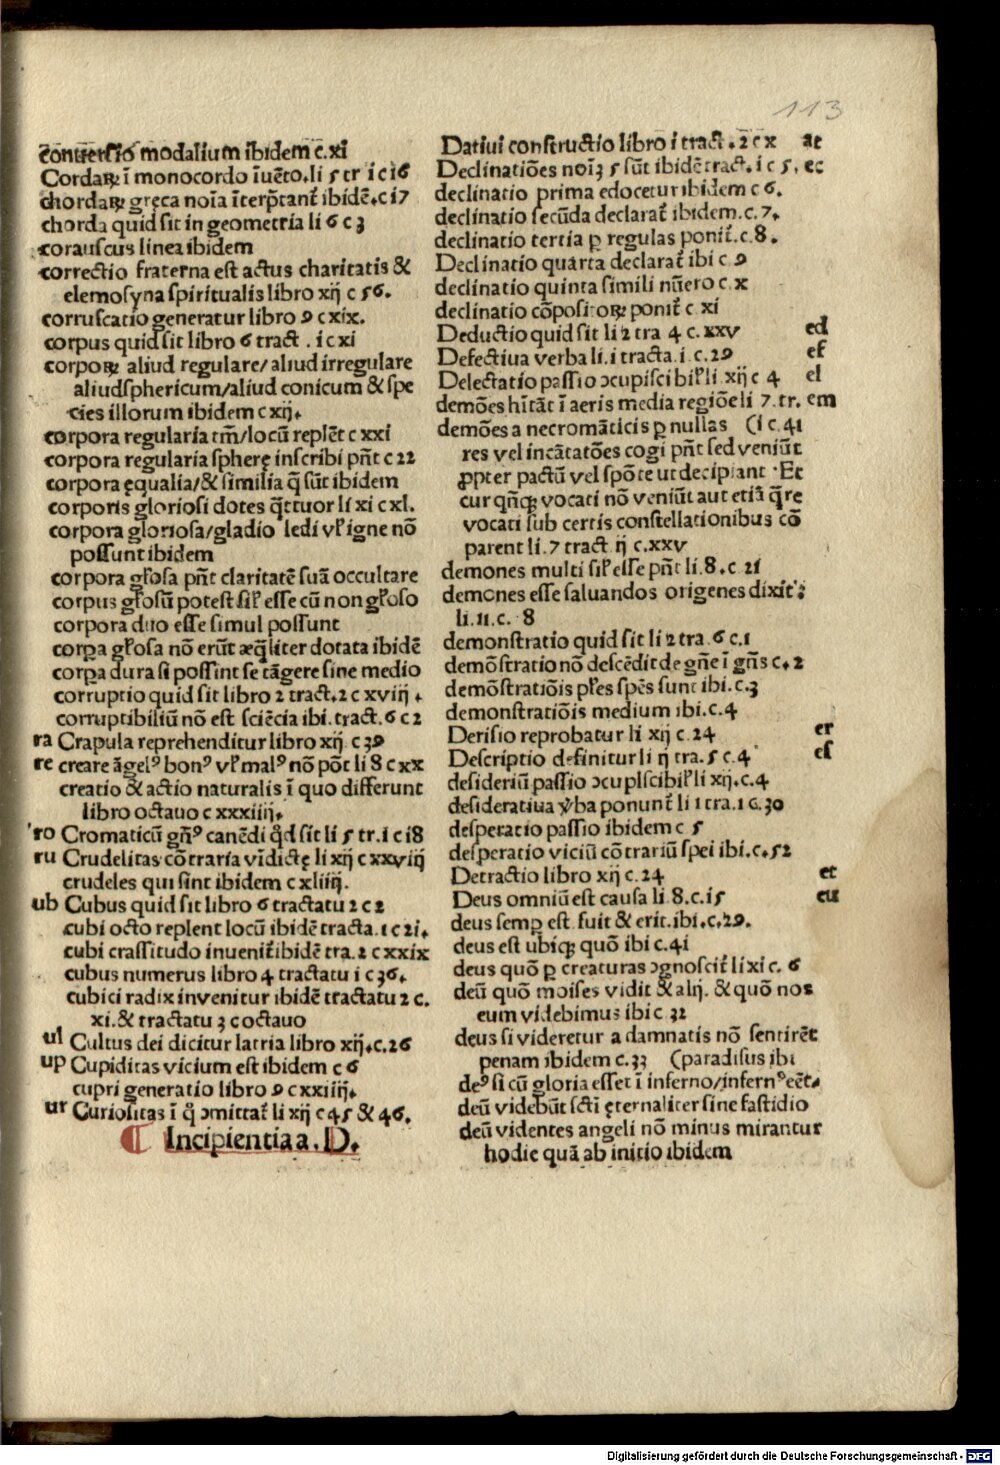 113
cōnuersio modalium ibidem c.xi
Cordaꝝ ī monocordo īuēto.li 5 tr i c i6
chordaꝝ gręca noīa īterp̄tant̄ ibidē.c i7
chorda quid sit in geometria li 6 c 3
corauscus linea ibidem
correctio fraterna est actus charitatis &
elemosyna spiritualis libro xij c 56.
corruscatio generatur libro 9 c xix.
corpus quid sit libro 6 tract . i c xi
corpoꝝ aliud regulare/aliud irregulare
aliud sphericum/aliud conicum & spe
cies illorum ibidem c xij.
corpora regularia tm̄/locū replēt c xxi
corpora regularia spherę inscribi pn̄t c 22
corpora ęqualia/& similia q̄ sūt ibidem
corporis gloriosi dotes q̄ttuor li xi c xl.
corpora gloriosa/gladio ledi vl̓ igne nō
possunt ibidem
corpora gl̓osa pn̄t claritatē suā occultare
corpus gl̓osū potest sil̓ esse cū non gl̓oso
corpora duo esse simul possunt
corꝑa gl̓osa nō erūt æq̄liter dotata ibidē
corꝑa dura si possint se tāgere sine medio
corruptio quid sit libro 2 tract.2 c xviij .
corruptibiliū nō est sciēcia ibi.tract.6 c 2
ra Crapula reprehenditur libro xij c 39
re creare āgelꝰ bonꝰ vl̓ malꝰ nō pōt li 8 c xx
creatio & actio naturalis ī quo differunt
libro octauo c xxxiiij.
ro Cromaticū gn̄ꝰ canēdi q̄d sit li 5 tr.i c i8
ru Crudelitas cōtraria vīdictę li xij c xxviij
crudeles qui sint ibidem c xliiij.
ub Cubus quid sit libro 6 tractatu 2 c 2
cubi octo replent locū ibidē tracta.i c 2i.
cubi crassitudo inuenit̄ ibidē tra.2 c xxix
cubus numerus libro 4 tractatu i c 36.
cubici radix invenitur ibidē tractatu 2 c.
xi.& tractatu 3 c octauo
ul Cultus dei dicitur latria libro xij.c.26
up Cupiditas vicium est ibidem c 6
cupri generatio libro 9 c xxiiij.
ur Curiositas ī q̊ ↄmittat̄ li xij c 45 & 46.
¶ Incipientia a . D.
Datiui constructio libro i tract.2 c x at
Declinatiōes noīꝫ 5 sūt ibidē tract.i c 5. ec
declinatio prima edocetur ibidem c 6.
declinatio secūda declarat̄ ibidem.c.7.
declinatio tertia ꝑ regulas ponit̄.c.8.
Declinatio quarta declarat̄ ibi c 9
declinatio quinta simili nūero c.x
declinatio cōpositoꝝ ponit̄ c xi
Deductio quid sit li 2 tra 4 c.xxv ed
Defectiua verba li.i tracta.i.c.29 ef
Delectatio passio ↄcupiscibil̓ li xij c 4 el
demōes hītāt ī aeris media regiōe li 7.tr. em
demōes a necromāticis ꝑ nullas (i c.41
res vel incātatōes cogi pn̄t sed veniūt
ꝓpter pactū vel spōte ut decipiant · Et
cur qn̄qꝫ vocati nō veniūt aut etiā q̄re
vocati sub certis constellationibus cō
parent li.7 tract ij c.xxv
demones multi sil̓ esse pn̄t li.8.c 2i
demones esse saluandos origenes dixit:
li.11.c. 8
demonstratio quid sit li 2 tra.6 c.1
demōstratio nō descēdit de gn̄e ī gn̄s c.2
demōstratiōis pl̓es spēs sunt ibi.c.3
demonstratiōis medium ibi.c.4
Derisio reprobatur li xij c.24 er
Descriptio definitur li ij tra.5 c.4 es
desideriū passio ↄcupīscibil̓ li xij.c.4
desideratiua v̓ba ponunt̄ li 1 tra.1 c.30
desperatio passio ibidem c 5
desperatio viciū cōtrariū spei ibi.c.52
Detractio libro xij c.24 et
Deus omniū est causa li.8.c.i5 eu
deus semꝑ est fuit & erit.ibi.c.29.
deus est ubiqꝫ quō ibi c.4i
deus quō ꝑ creaturas ↄgnoscit̄ li xi c. 6
deū quō moises vidit & alij. & quō nos
eum videbimus ibi c 32
deus si videretur a damnatis nō sentirēt
penam ibidem c.33 (paradisus ibi
deꝰ si cū gloria esset ī inferno/infernꝰ eēt.
deū videbūt scti ęternaliter sine fastidio
deū videntes angeli nō minus mirantur
hodie quā ab initio ibidem
Digitalisierung gefördert durch die Deutsche Forschungsgemeinschaft - DFG